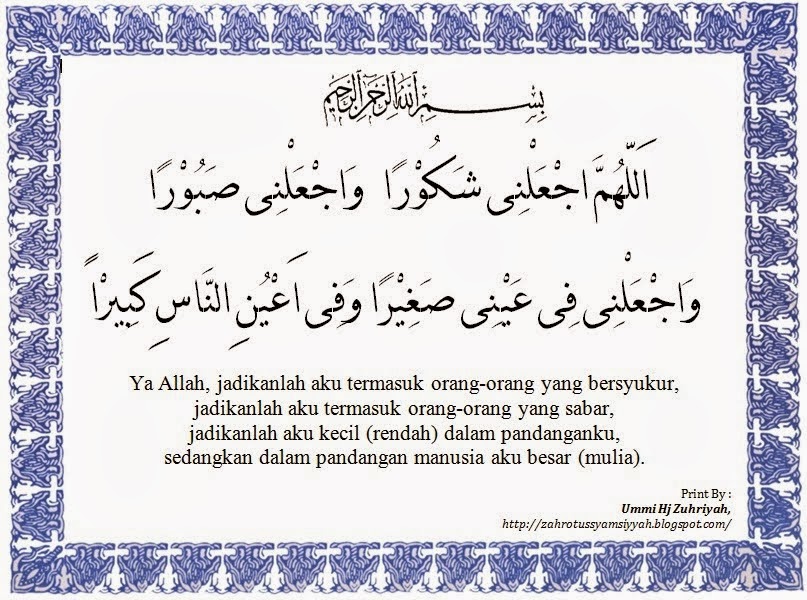 بِسْمِ اللهِ الرَّحْمٰنِ الرَّحِيْمِ
اَللّٰهُمَّ اجْعَلْنِى شَكُوْرًا وَاجْعَلْنِى صَبُوْرًا
وَاجْعَلْنِى فِى عَيْنِى صَغِيْرًا وَفِى اَعْيُنِ النَّاسِ كَبِيْرًا
Ya Allah, jadikanlah aku termasuk orang-orang yang bersyukur,
jadikanlah aku termasuk orang-orang yang sabar,
jadikanlah aku kecil (rendah) dalam pandanganku,
sedangkan dalam pandangan manusia aku besar (mulia).
Print By :
Ummi Hj Zuhriyah,
http://zahrotussyamsiyyah.blogspot.com/